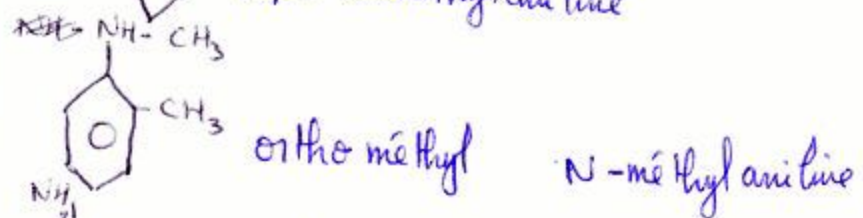 NH- CH3
CH3
ortho méthyl N-méthyl aniline
NH